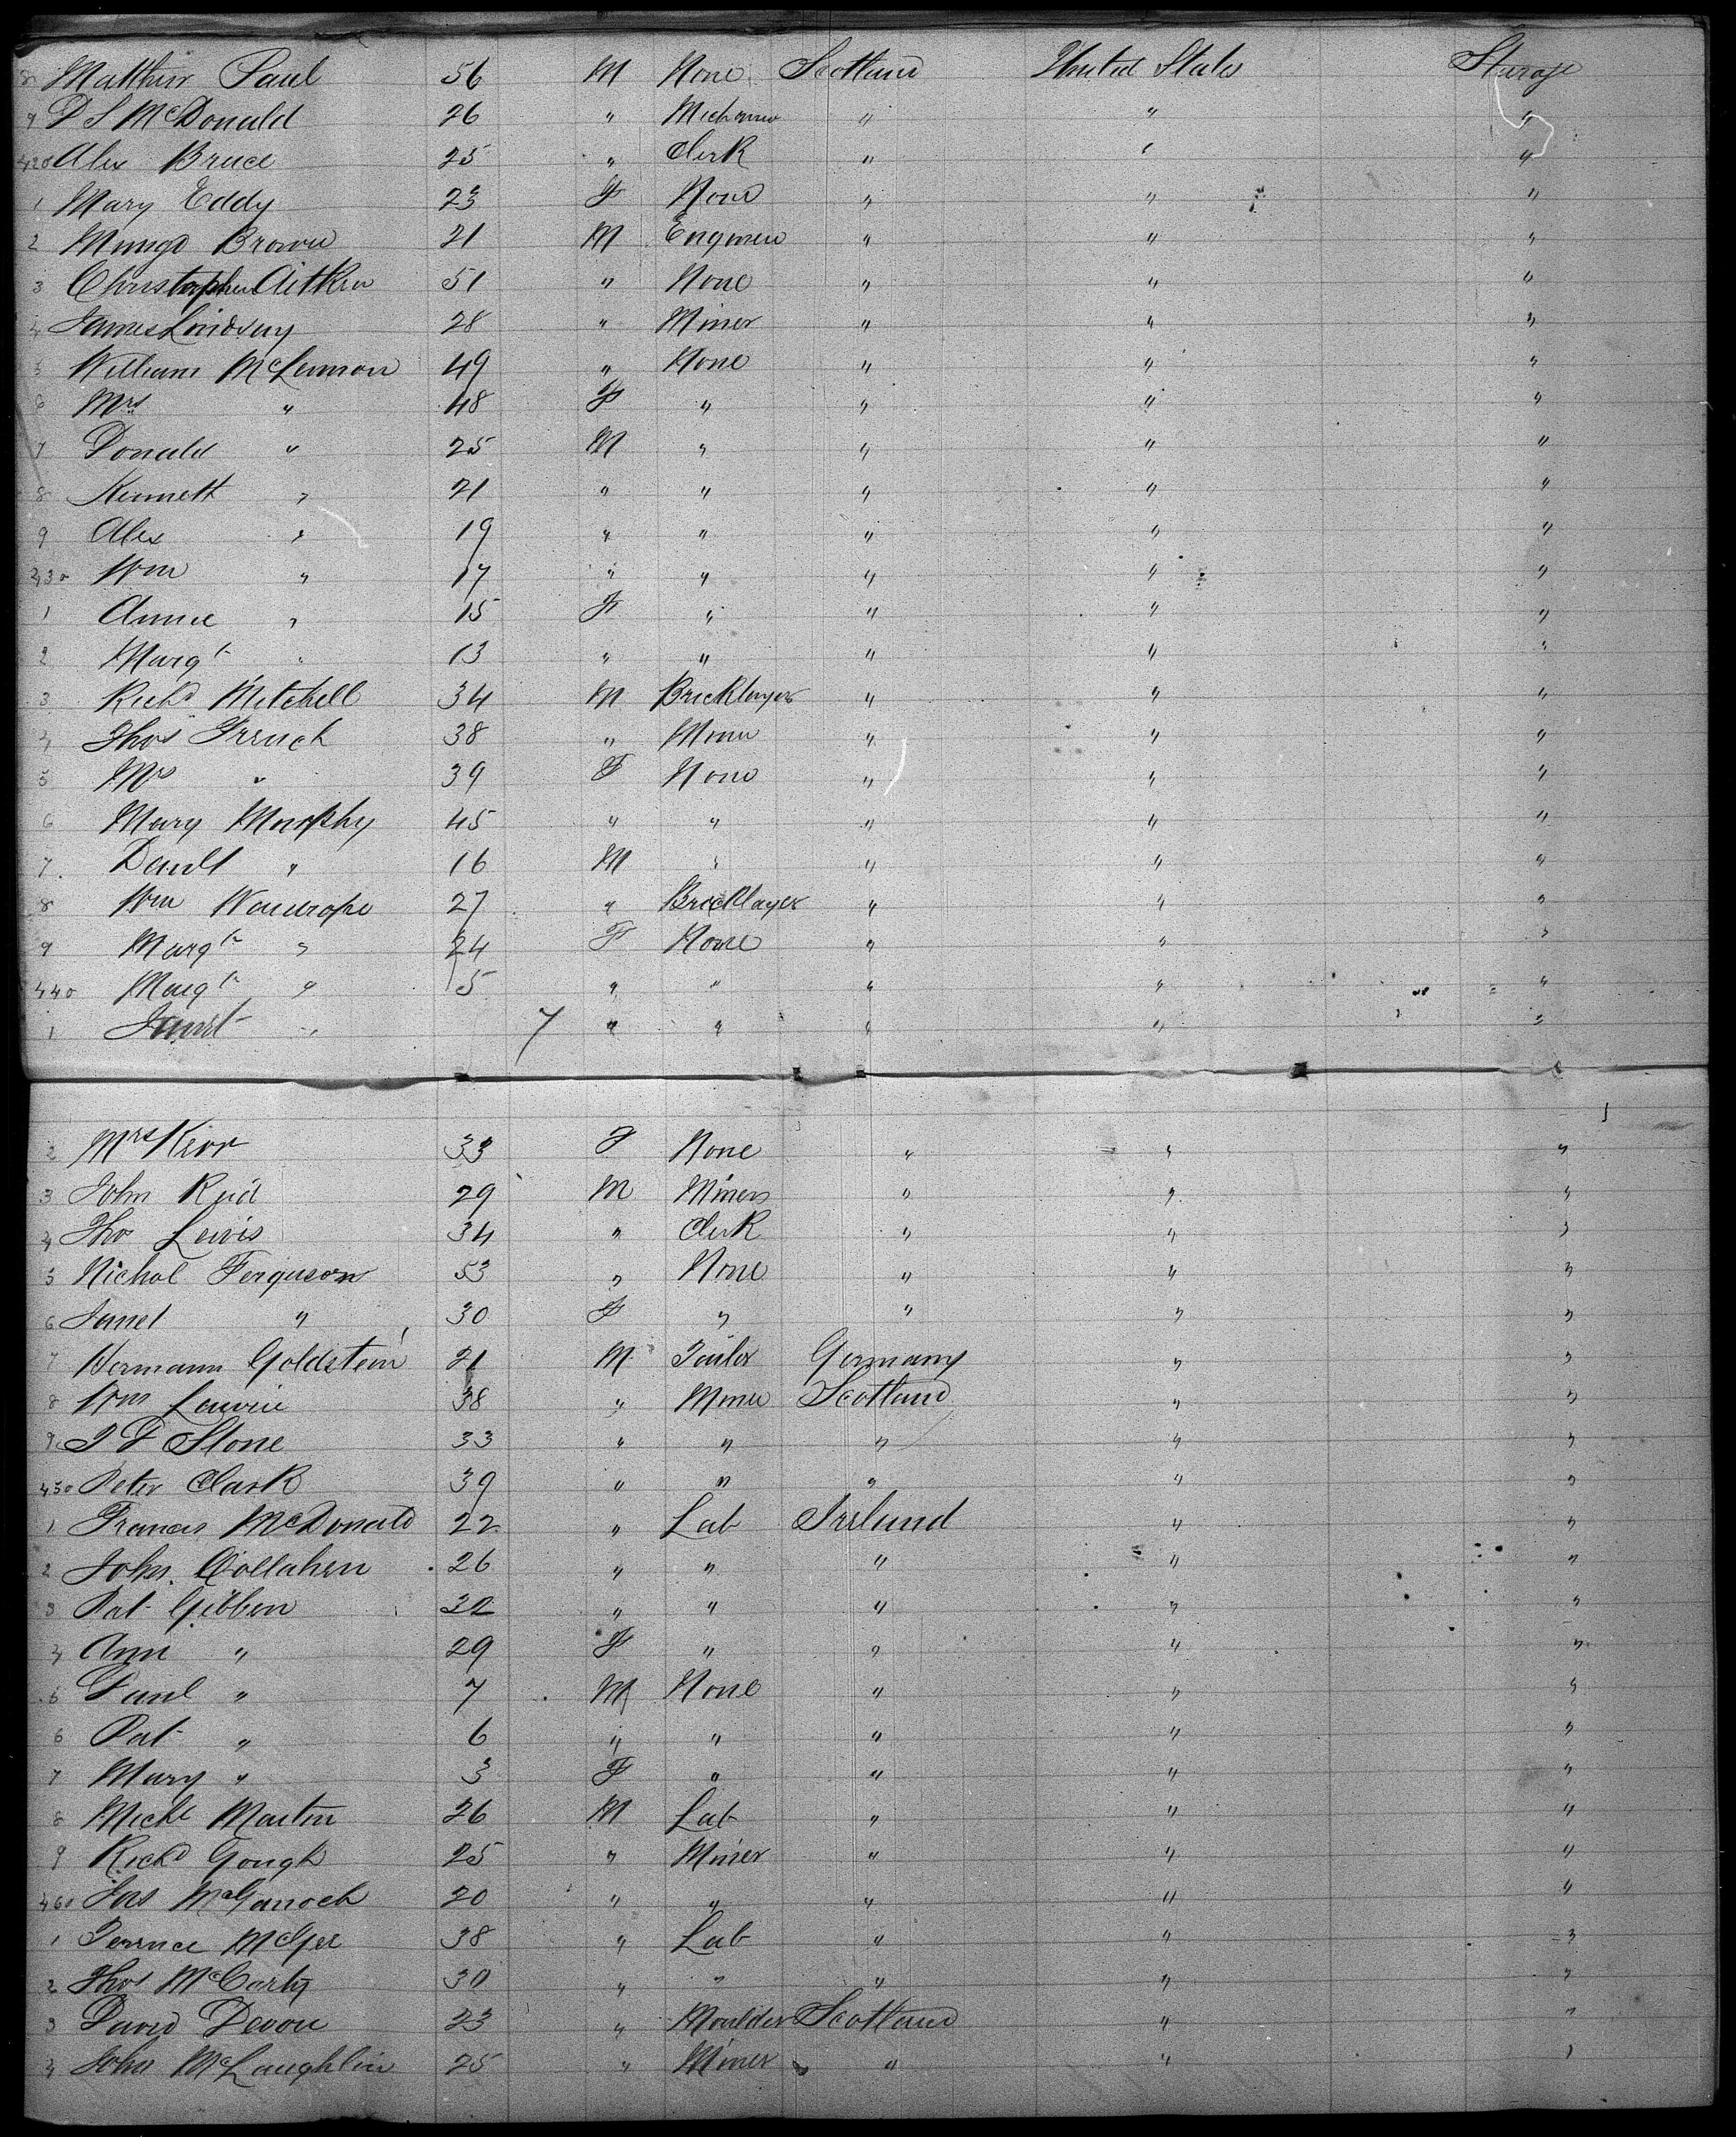 8 Matthew Paul 56 M None Scotland United States Sterage
9 D S McDonald 26 " Mechanic " " "
420 Alex Bruce 25 " Clerk " " "
1 Mary Eddy 23 F None " " "
2 Mungo Brown 21 M Engineer " " "
3 Christopher Aitken 51 " None " " "
4 James Lindsay 28 " Miner " " "
5 William McLennon 49 " None " " "
6 Mrs " 48 F " " " "
7 Donald " 25 M " " " "
8 Kenneth " 21 " " " " "
9 Alex " 19 " " " " "
430 Wm " 17 " " " " "
1 Annie " 15 F " " " "
2 Margt " 13 " " " " "
3 Richd Mitchell 34 M Bricklayer " " "
4 Thos French 38 " Miner " " "
5 Mrs " 39 F None " " "
6 Mary Murphy 45 " " " " "
7 Danl " 16 M " " " "
8 Wm Wardrope 27 " Bricklayer " " "
9 Margt " 24 F None " " "
440 Margt " 5 " " " " "
1 Janet " 7 " " " " "
2 Mrs Kerr 33 F None " " "
3 John Reid 29 M Miner " " "
4 Tho Lewis 34 " Clerk " " "
5 Nichol Ferguson 53 " None " " "
6 Janet " 30 F " " " "
7 Hermann Goldstein 21 M Tailor Germany " "
8 Wm Lawrie 38 " Miner Scotland " "
9 J F Stone 33 " " " " "
450 Peter Clark 39 " " " " "
1 Francis McDonald 22 " Lab Ireland " "
2 John Collahen 26 " " " " "
3 Pat Gibben 32 " " " " "
4 Ann " 29 F " " " "
5 Danl " 7 M None " " "
6 Pat " 6 " " " " "
7 Mary " 3 F " " " "
8 Michl Martin 26 M Lab " " "
9 Richd Gough 25 " Miner " " "
460 Jas 20 " " " " "
1 Terrnce McGee 38 " Lab " " "
2 Thos McCarty 30 " " " " "
3 David Devon 23 " Moulder Scotland " "
4 John McLaughlin 25 " Miner " " "